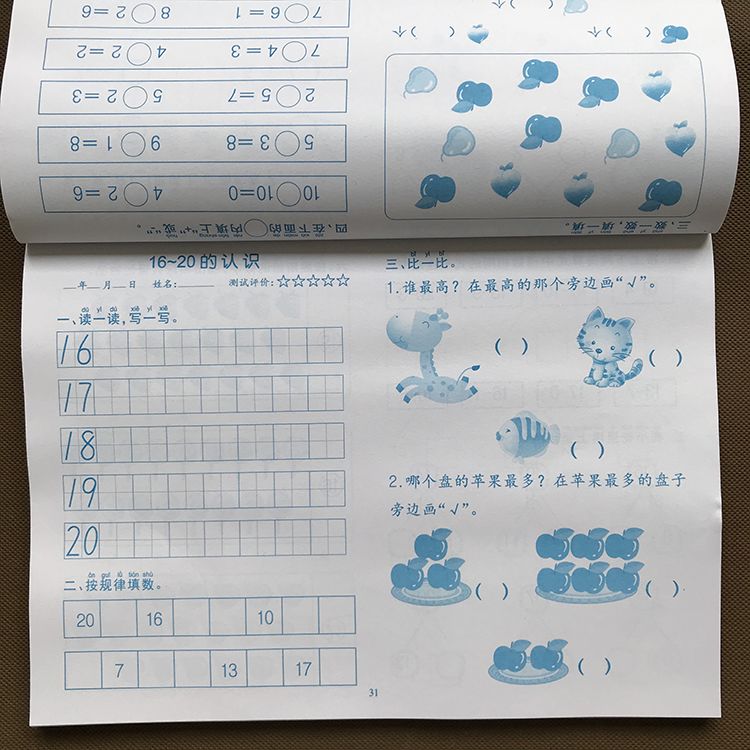 三、数一数，填一填。
(　)个 (　)个
四、在下面的○内填上“+”或“-”。
10○10=0 4○2=6
5○3=8 9○1=8
2○5=7 5○2=3
7○4=3 4○2=2
7○6=1 8○2=6
16~20的认识
__年__月__日 姓名:____ 测试评价:☆☆☆☆☆
dú yì dú xiě yì xiě
一、读一读,写一写。
16
17
18
19
20
àn guī lǜ tián shù
二、按规律填数。
20 16 10
7 13 17
bǐ yì bǐ
三、比一比。
1.谁最高？在最高的那个旁边画“√”。
(　) (　)
(　)
2.哪个盘的苹果最多？在苹果最多的盘子
旁边画“√”。
(　) (　)
(　)
31